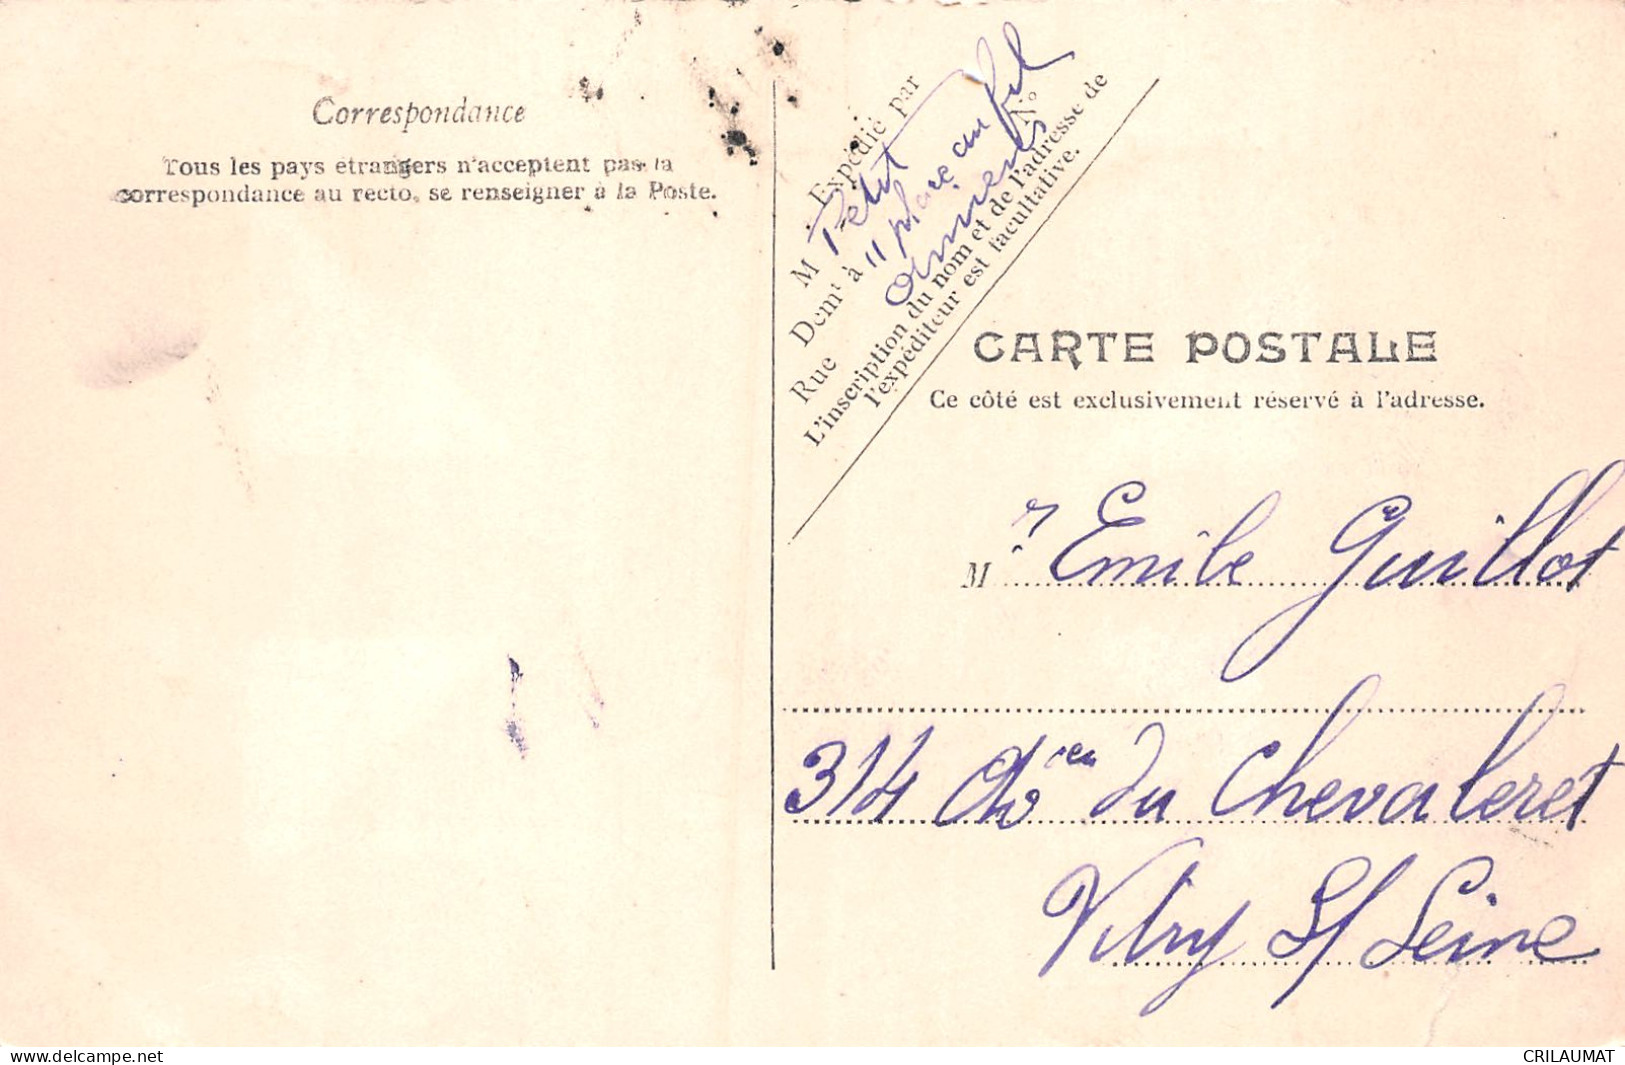 Correspondance
Tous les pays étrangers n'acceptent pas la
correspondance au recto, se renseigner à la Poste.
Expédié par
M Petit
Demt à 11 place au fil
Rue Amiens N°
L'inscription du nom et de l'adresse de
l'expéditeur est facultative.
CARTE POSTALE
Ce côté est exclusivement réservé à l'adresse.
M r Emile Guillot
314 Ch en du Chevaleret
Vitry S/ Seine
delcampe.net
CRILAUMAT